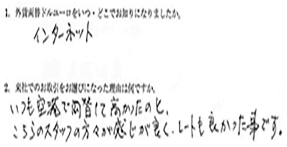 1. 外貨両替ドルユーロをいつ・どこでお知りになりましたか。
インターネット
2. 当社でのお取引をお選びになった理由は何ですか。
いつも空港で両替して高かったのと、
こちらのスタッフの方々が感じが良く、レートも良かった事です。